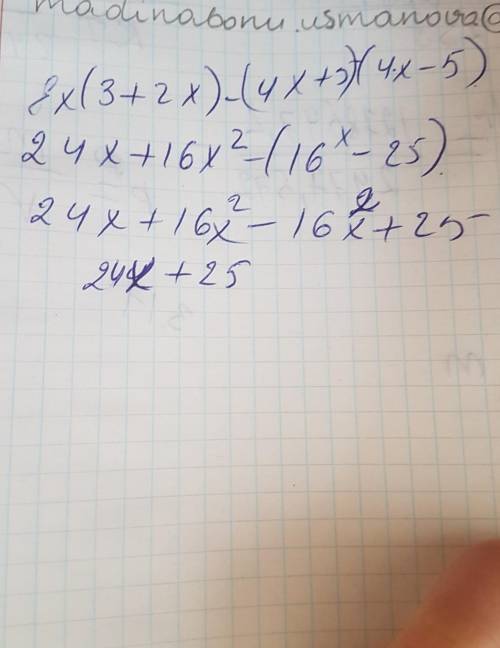 madinabonu.usmanova@
8x(3+2x)-(4x+5)(4x-5)
24x+16x²-(16ˣ-25)
24x+16x²-16x²+25
24x+25